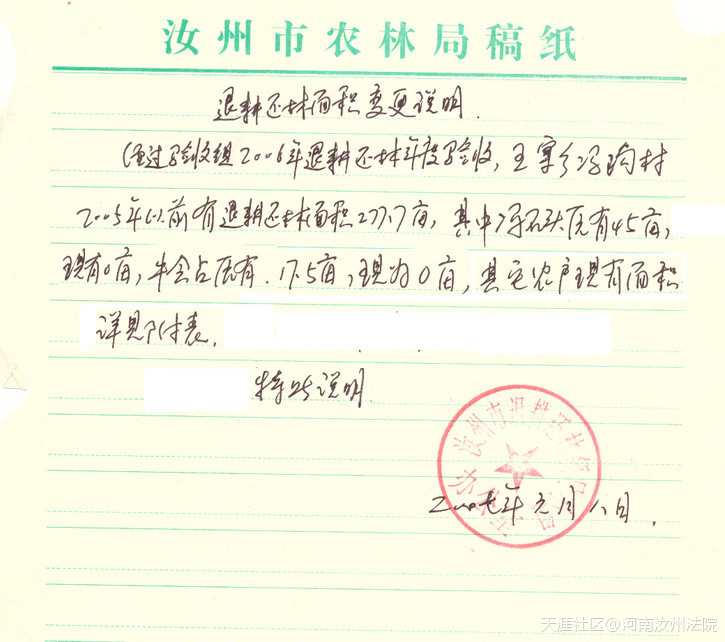 汝州市农林局稿纸
退耕还林面积变更说明.
经过验收组2006年退耕还林年度验收,王寨乡冯沟村
2005年以前有退耕还林面积277.7亩,其中冯石头原有45亩,
现有0亩,牛会占原有.17.5亩,现为0亩,其它农户现有面积
详见附表.
特此说明.
汝州市退耕还林
二00七年元月八日.
天涯社区@河南汝州法院